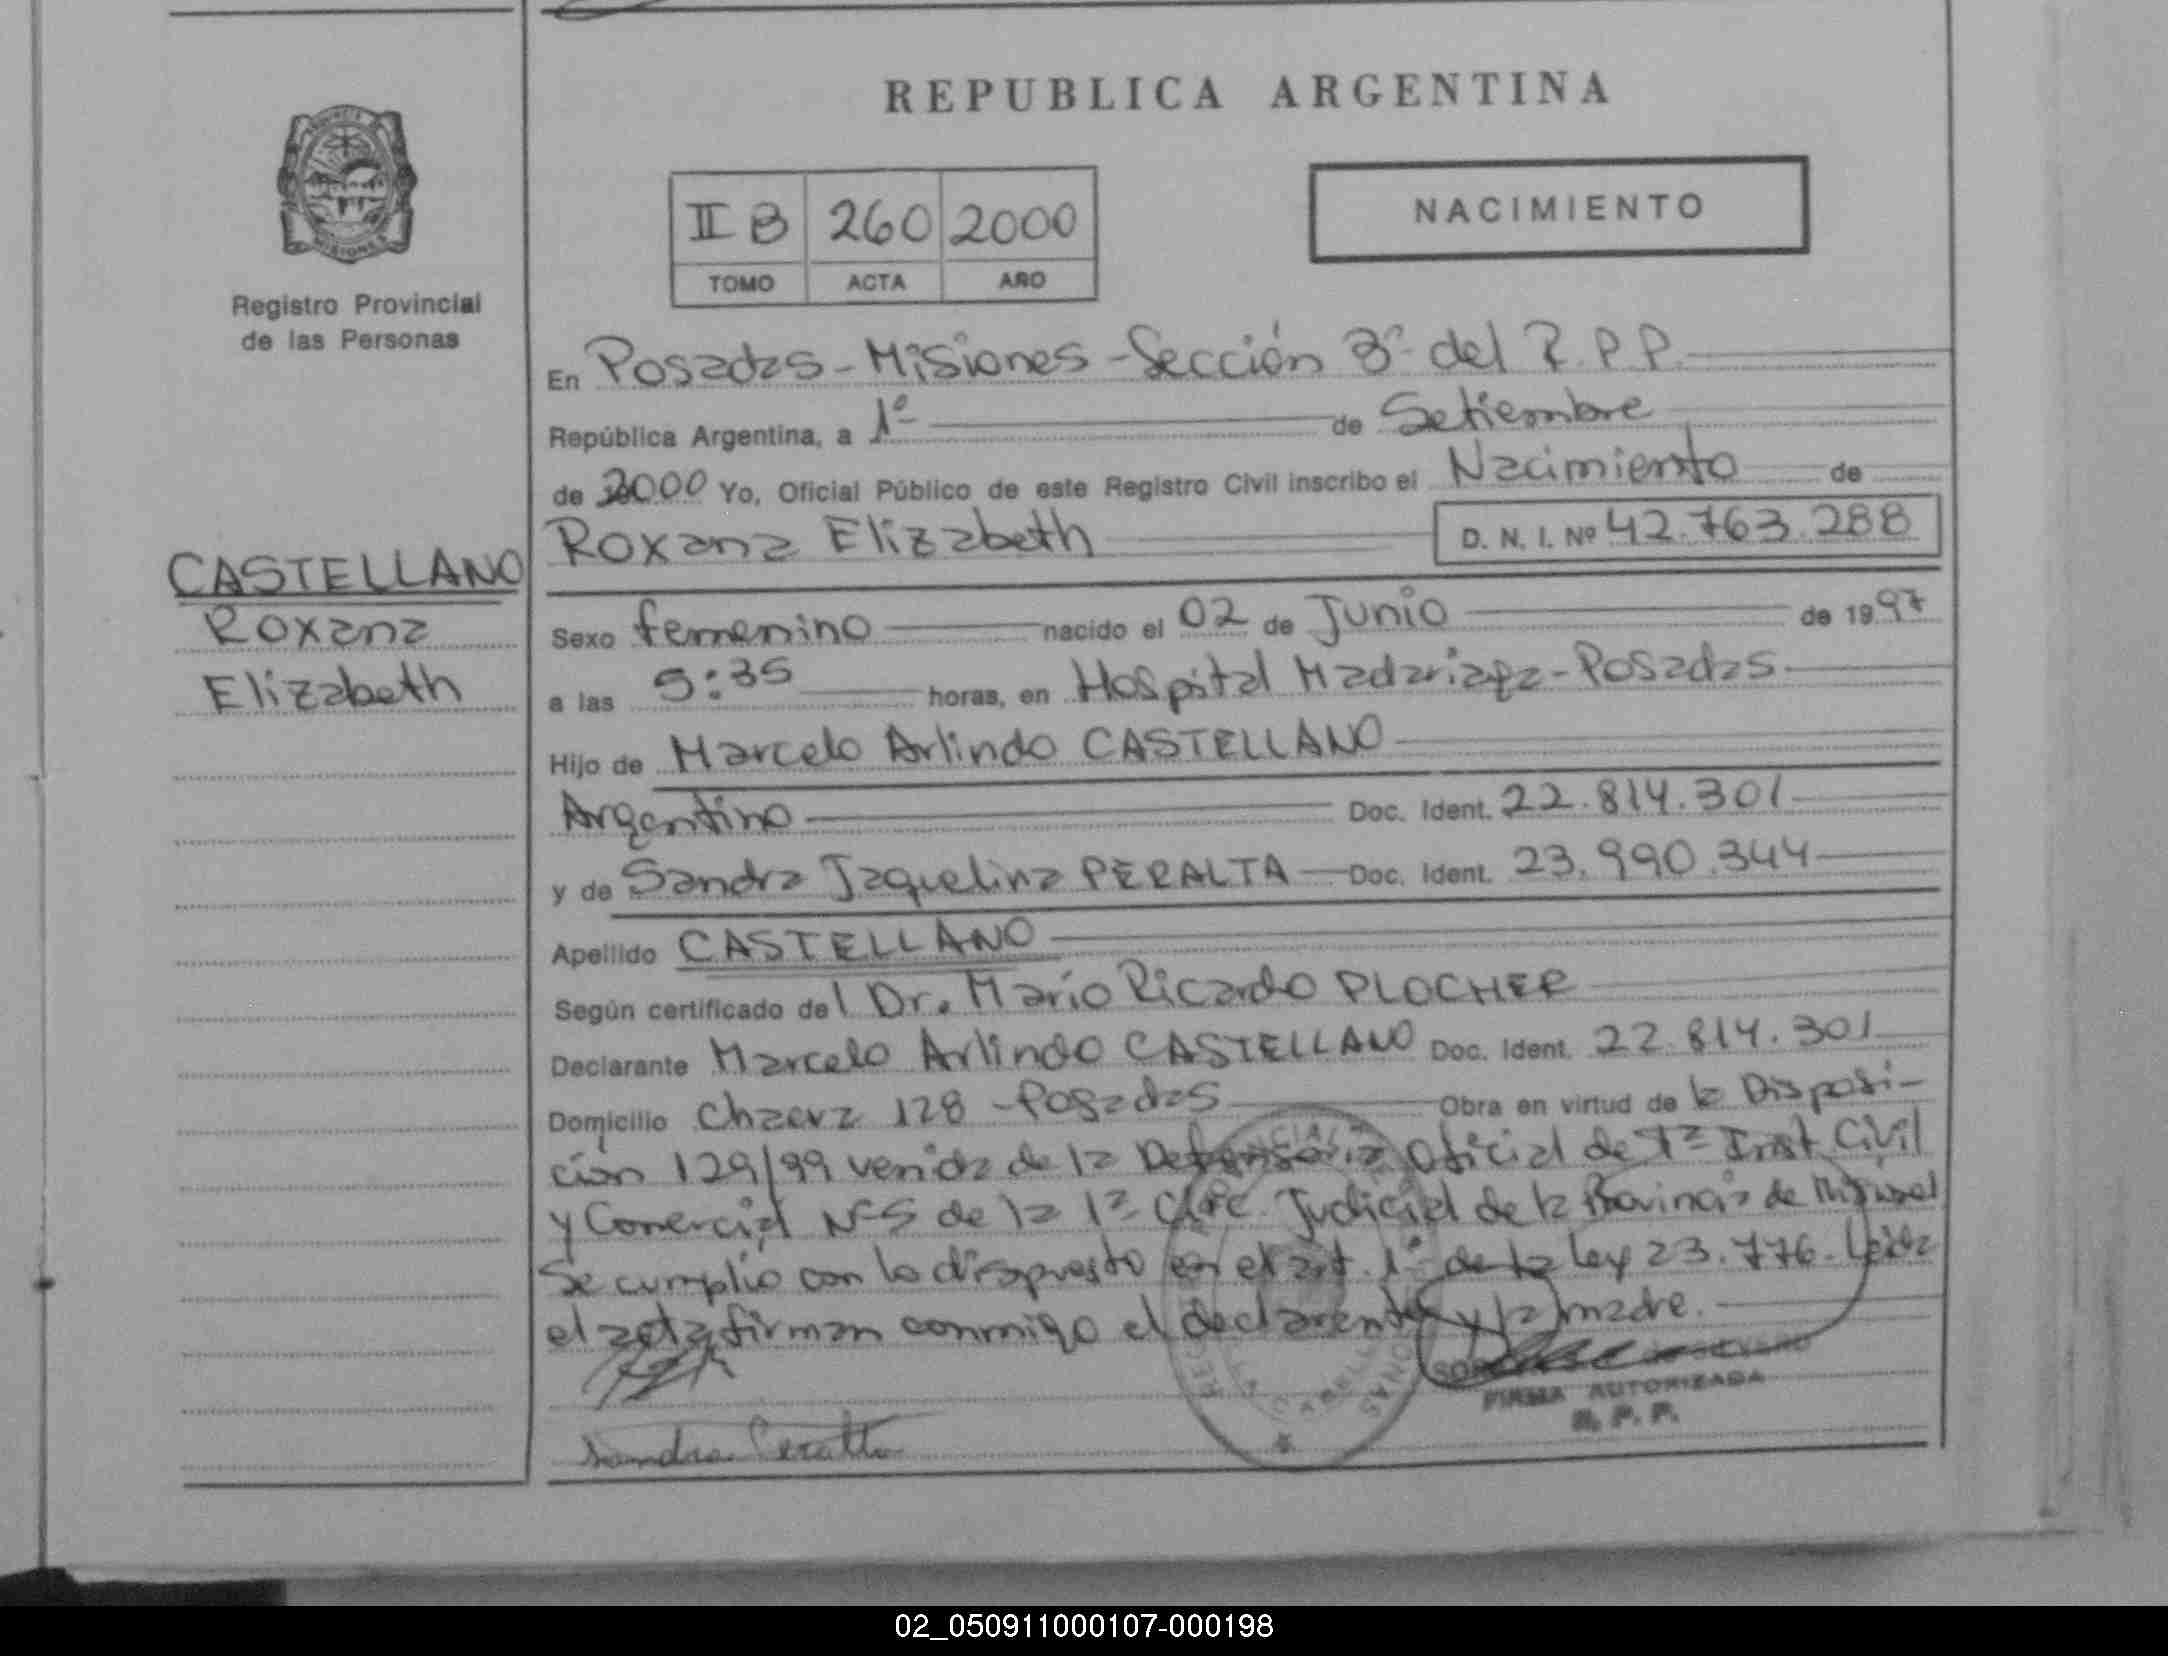 REPUBLICA ARGENTINA
PROVINCIA DE
MISIONES
Registro Provincial
de las Personas
II B 260 2000
TOMO ACTA AÑO
NACIMIENTO
En Posadas-Misiones-Sección 3ª del R.P.P.
República Argentina, a 1º de Setiembre
de 2000 Yo, Oficial Público de este Registro Civil inscribo el Nacimiento de
Roxana Elizabeth D. N. I. Nº 42.763.288
CASTELLANO
Roxana
Elizabeth
Sexo femenino nacido el 02 de Junio de 1997
a las 5:35 horas, en Hospital Madariaga-Posadas
Hijo de Marcelo Arlindo CASTELLANO
Argentino Doc. Ident. 22.814.301
y de Sandra Jaquelina PERALTA Doc. Ident. 23.990.344
Apellido CASTELLANO
Según certificado del Dr. Mario Ricardo PLOCHER
Declarante Marcelo Arlindo CASTELLANO Doc. Ident. 22.814.301
Domicilio Chacra 128 - Posadas Obra en virtud de la Disposi-
ción 129/99 venida de la Defensoria Oficial de 1ª Inst. Civil
y Comercial Nº5 de la 1ª Circ. Judicial de la Provincia de Misiones
Se cumplio con lo dispuesto en el art. 1º de la Ley 23.776. Leida
el acta, firman conmigo el declarante y la madre.
FIRMA AUTORIZADA
R. P. P.
Sandra Peralta
02_050911000107-000198